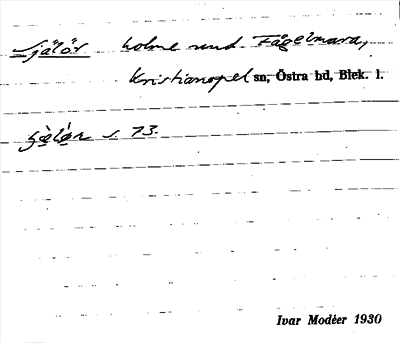 Själör holme und. Fågelmara,
Kristianopel sn, Östra hd, Blek. l.
s. 73.
Ivar Modéer 1930